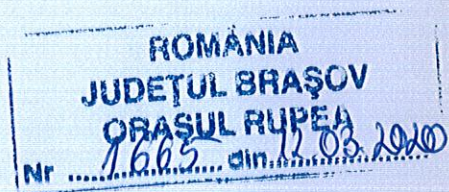 ROMÂNIA
JUDEŢUL BRAŞOV
ORAŞUL RUPEA
Nr ........1665........ din 12.03.2020